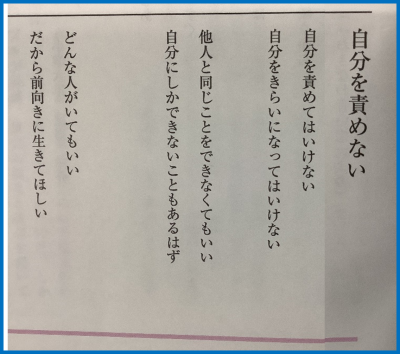 自分を責めない
自分を責めてはいけない
自分をきらいになってはいけない
他人と同じことをできなくてもいい
自分にしかできないこともあるはず
どんな人がいてもいい
だから前向きに生きてほしい